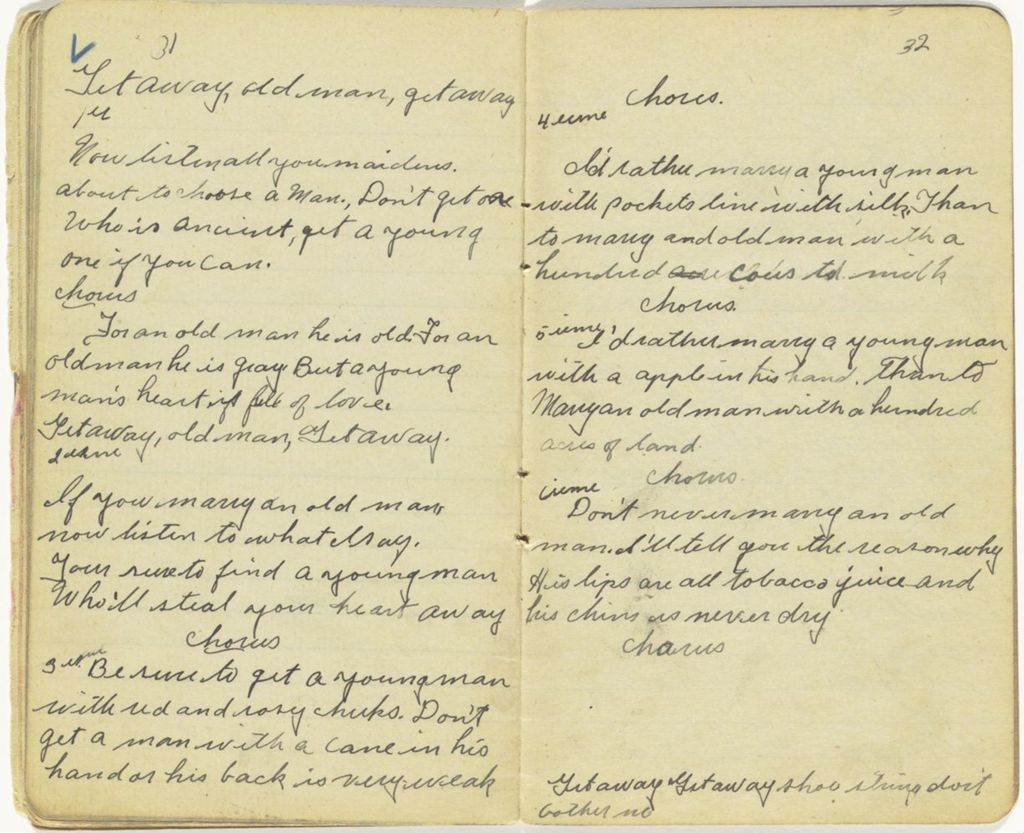 31
Get away, old man, get away
1er
Now listen all you maidens.
about to choose a Man., Don't get one
Who is ancient, get a young
one if you can.
Chorus
For an old man he is old. For an
old man he is gray But a young
man's heart is full of love.
Get away, old man, Get away.
2ieme
If you marry an old man
now listen to what I say.
Your sure to find a young man
Who'll steal your heart away
Chorus
3ieme Be sure to get a young man
with red and rosy cheeks. Don't
get a man with a cane in his
hand or his back is very weak
32
Chorus.
4ieme
I'd rather marry a young man
with pockets line with silk, Than
to marry and old man with a
hundred cows to milk
Chorus.
5ieme I'd rather marry a young man
with a apple in his hand. Than to
Marry an old man with a hundred
acres of land.
Chorus.
6ieme
Don't never marry an old
man. I'll tell you the reason why
His lips are all tobacco juice and
his chins is never dry.
Chorus
Get away Get away shoo don't
bother